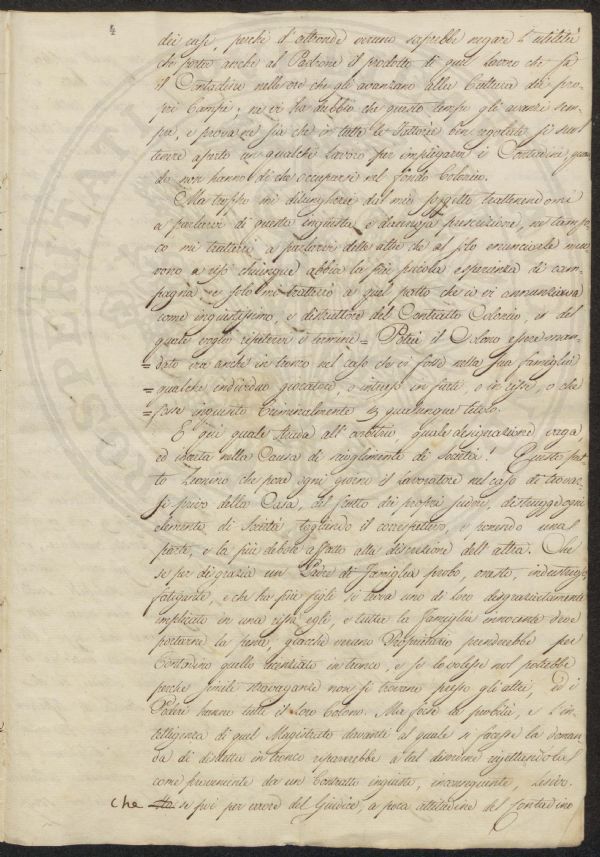 4
dei casi, perché d'altronde veruno saprebbe negare l'utilità
che porta anche al Padrone il prodotto di quel lavoro che fa
il Contadino nelle ore che gli avanzano alla Cultura dei pro-
pri Campi; né vi ha dubbio che questo tempo gli avanzi sem-
pre, e prova ne sia che in tutte le Fattorie ben regolate si suol
tenere aperto un qualche lavoro per impiegarvi i Contadini quan-
do non hanno di che occuparsi nel fondo Colonico.
Ma troppo mi dilungherei dal mio soggetto trattenendomi
a parlarvi di questa ingiusta, e dannosa privazione, né tampo-
co mi tratterrò a parlarvi delle altre che al solo enunciarle muo-
vono a riso chiunque abbia la più piccola esperienza di cam-
pagna, e solo mi tratterrò a quel patto che io vi annunziava
come ingiustissimo, e distruttore del Contratto Colonico, e del
quale voglio ripetervi i termini = Potrà il Colono essere man-
= dato via anche in tronco nel caso che vi fosse nella sua famiglia
= qualche individuo giocatore, o intriso in furti, o in risse, o che
= fosse inquisito Criminalmente per qualunque titolo.
E qui quale strada all'arbitrio, quale designazione vaga,
ed incerta nella Causa di scioglimento di Società! Questo pat-
to Leonino che pone ogni giorno il Lavoratore nel caso di trovar-
si privo della Casa, del frutto dei propri sudori, distrugge ogni
elemento di Società, togliendo il correspettivo, e ponendo una
parte, e la più debole affatto alla discrezione dell'altra. Che
se per disgrazia un Padre di Famiglia probo, onesto, industrioso,
fatigante, e che ha più figli si trova uno di loro disgraziatamente
implicato in una rissa egli, e tutta la Famiglia innocente deve
portarne la pena, giacché veruno Proprietario prenderebbe per
Contadino quello licenziato in tronco, e se lo volesse nol potrebbe
perché simile stravaganze non si trovano presso gli altri, ed i
Poderi hanno tutti il loro Colono. Ma forse la probità, e l'in-
telligenza di quel Magistrato davanti al quale si facesse la doman-
da di disdetta in tronco riparerebbe a tal disordine rigettandola
come proveniente da un Contratto ingiusto, inconseguente, lesivo.
Che se poi per errore del Giudice, a poca attitudine del Contadino